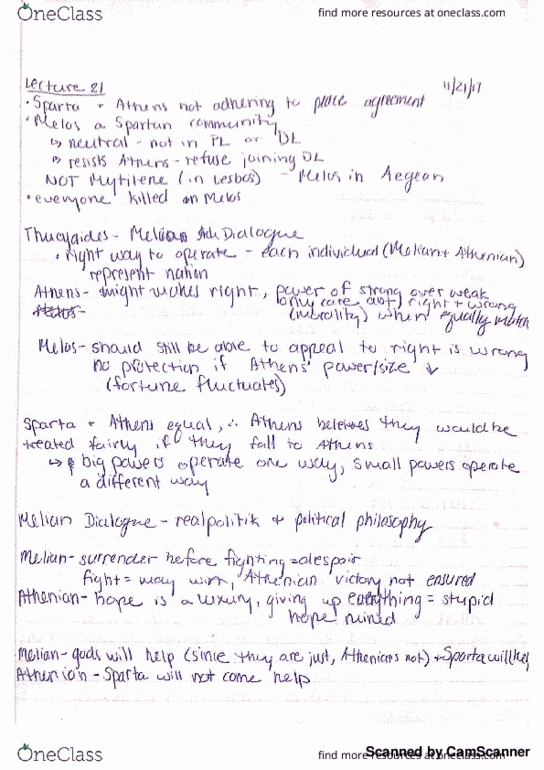 OneClass
find more resources at oneclass.com
Lecture 21
11/21/17
• Sparta + Athens not adhering to peace agreement
• Melos a Spartan community
↳ neutral - not in PL or DL
↳ resists Athens - refuse joining DL
NOT Mytilene (in Lesbos) - Melos in Aegean
• everyone killed on Melos
Thucydides - Melian Dialogue
• right way to operate - each individual (Melian + Athenian)
represent nation
Athens - might makes right, power of strong over weak
only care abt right + wrong
(morality) when equally match
Melos - should still be able to appeal to right is wrong
no protection if Athens' power/size ↓
(fortune fluctuates)
Sparta + Athens equal, ∴ Athens believes they would be
treated fairly if they fall to Athens
↳ big powers operate one way, small powers operate
a different way
Melian Dialogue - realpolitik + political philosophy
Melian - surrender before fighting = despair
fight = may win, Athenian victory not ensured
Athenian - hope is a luxury, giving up everything = stupid
hope ruined
Melian - gods will help (since they are just, Athenians not) + Sparta will help
Athenian - Sparta will not come help
OneClass
find more resources at oneclass.com
Scanned by CamScanner